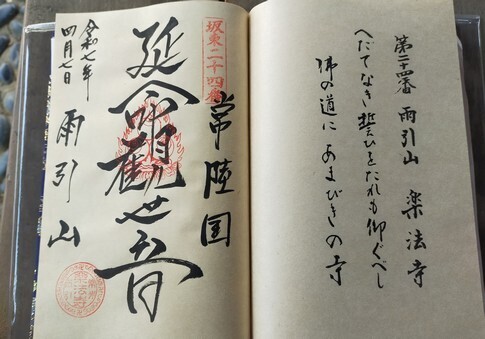 第二十四番 雨引山 楽法寺
へだてなき誓ひをたれも仰ぐべし
佛の道に あまびきの寺
坂東二十四番
常陸国
延命観世音
雨引山
令和七年
四月七日